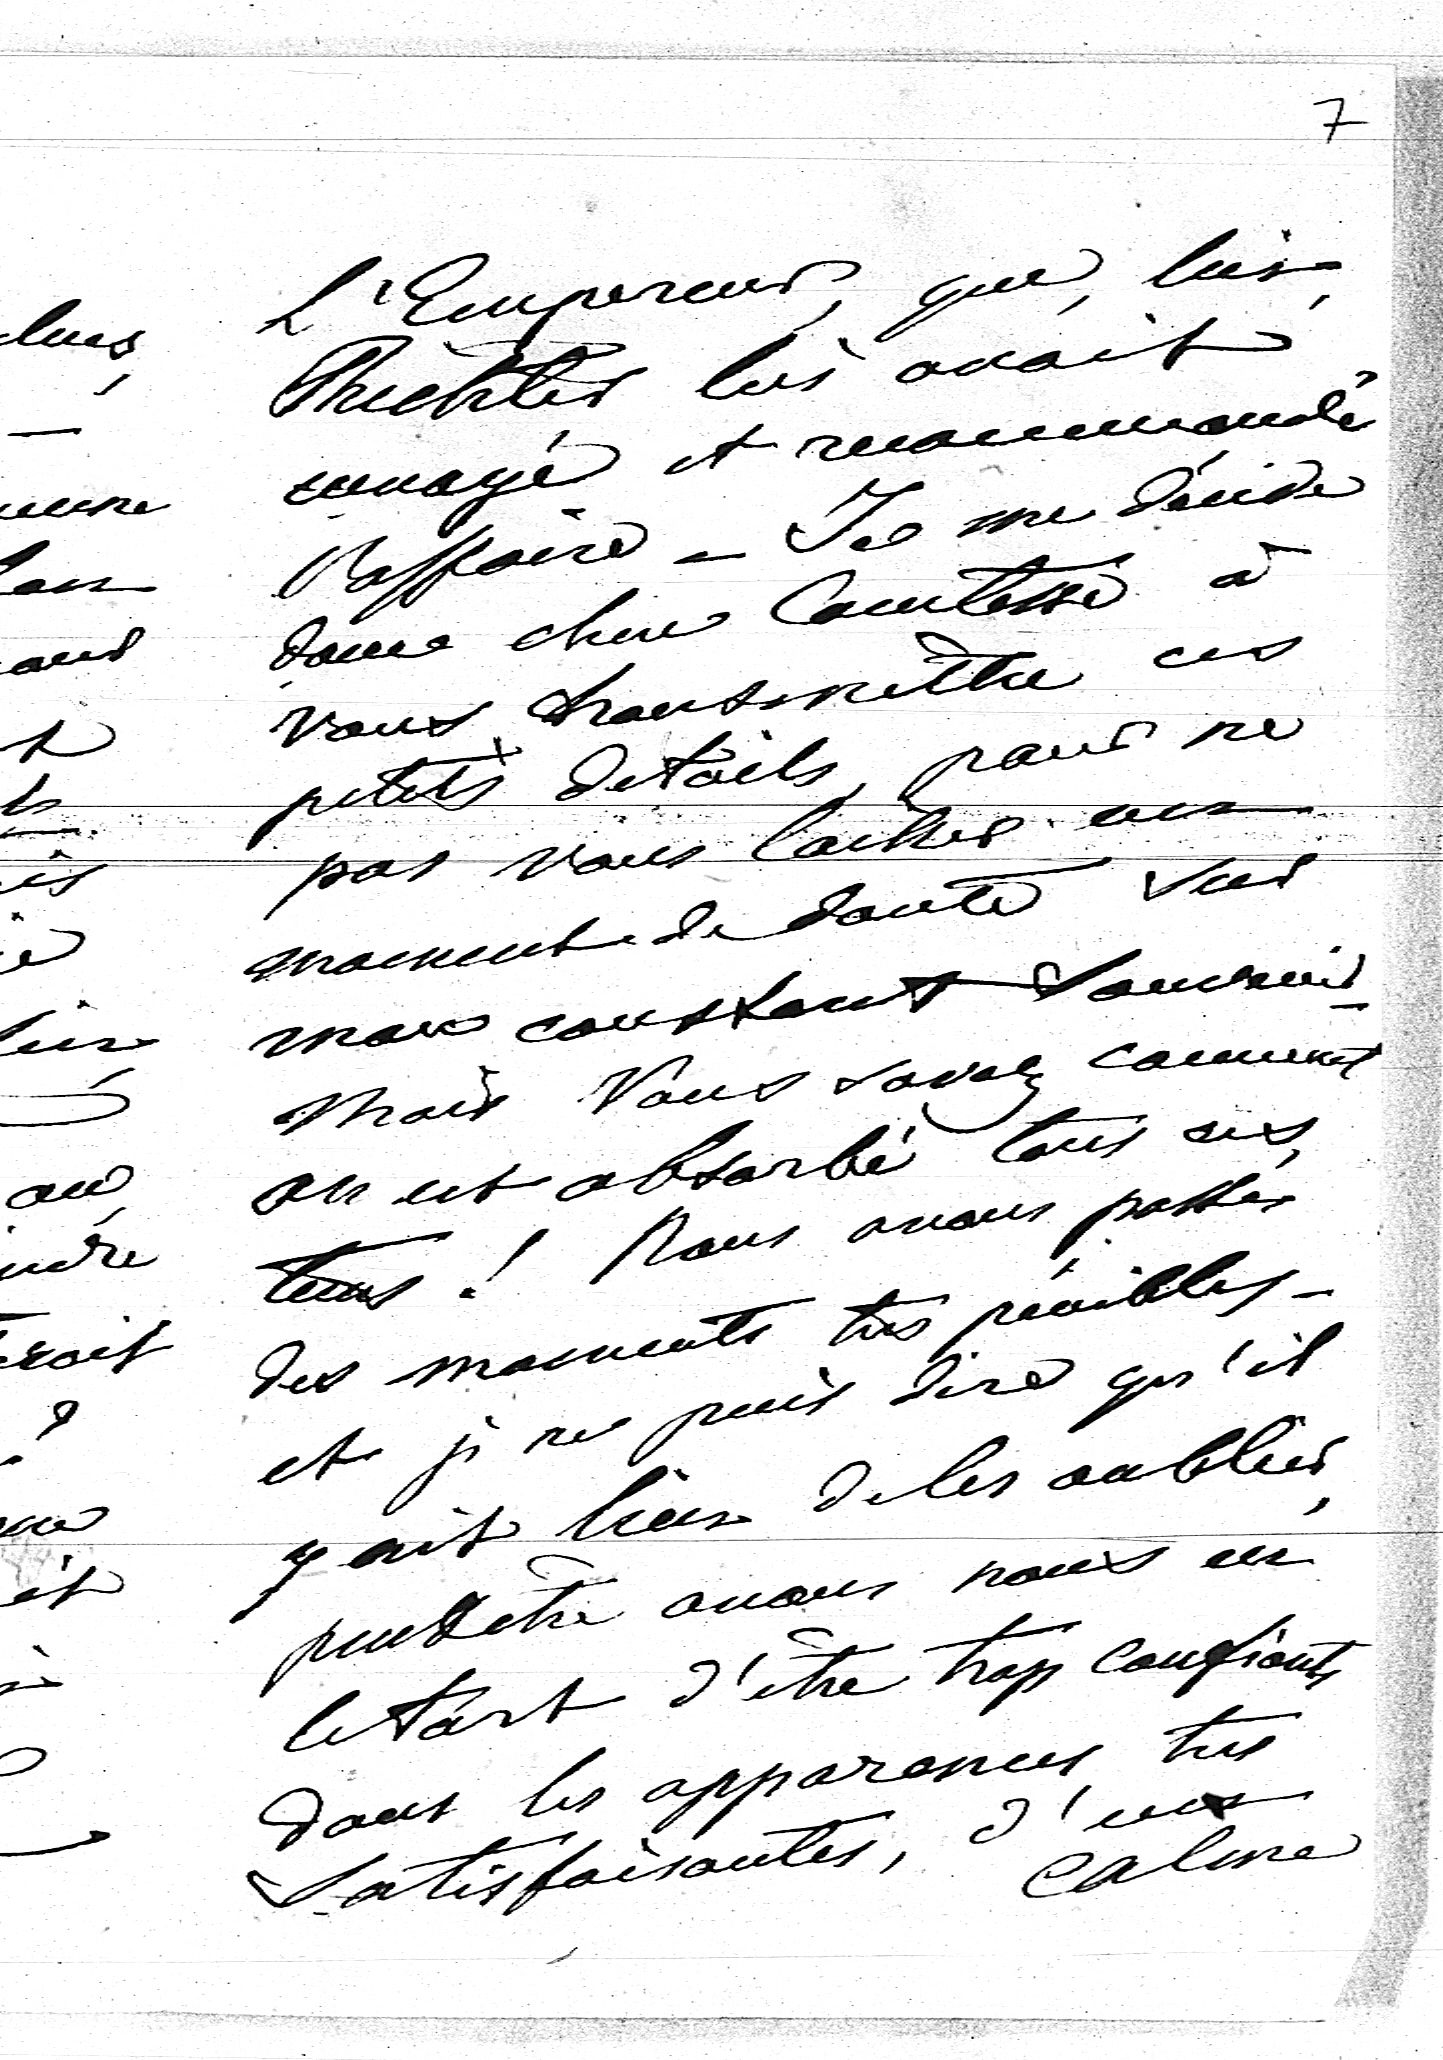 7
L'Empereur, que, lui,
Richter lui avait
envoyé et recommandé
l'affaire _ Je me décide
donc chere Comtesse à
vous transmettre ces
petits details, pour ne
pas vous laisser un
moment de doute sur
mon constant souvenir _
Mais Vous savez comment
on est absorbé tous ces
tems ! Nous avons passé
des moments très pénibles _
et je ne puis dire qu'il
y ait lieu de les oublier,
peutetre avons nous eu
le tort d'être trop confiants
dans les apparences très
satisfaisantes, d'un
calme